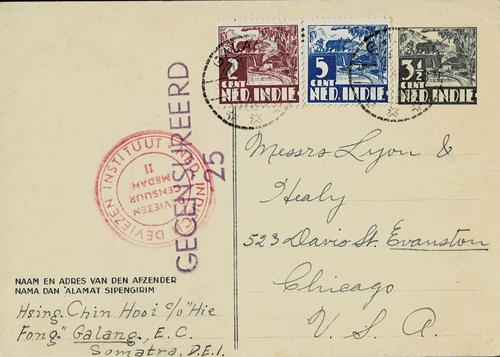 2
CENT
NED. INDIE
5
CENT
NED. INDIE
3½
CENT
NED. INDIE
GALANG
GECENSUREERD
25
DEVIEZEN INSTITUUT NED. INDIE
DEVIEZEN
CENSUUR
MEDAN
II
Messrs Lyon &
Healy
523 Davis St. Evanston
Chicago
U. S. A.
NAAM EN ADRES VAN DEN AFZENDER
NAMA DAN 'ALAMAT SIPENGIRIM
Hsing Chin Hooi c/o "Hie
Fong." Galang, E.C.
Somatra, D.E.I.